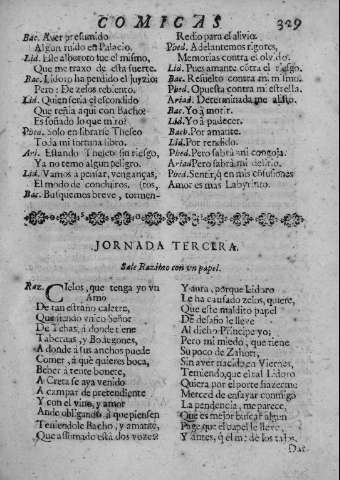 COMICAS
329
Bac. Aver presumido
Algun ruido en Palacio.
Lid. Este alboroto fue el mismo,
Que me traxo de esta suerte.
Bac. Lidoro ha perdido el juyzio:
Pero: De zelos rebiento.
Lid. Quien seria el escondido
Que reñia aqui con Bacho?
Es soñado lo que miro?
Solo en librarle Theseo
Toda mi fortuna libro.
Ari. Estando Thesseo sin riesgo,
Ya no temo algun peligro.
Lid. Vamos a pensar, venganças,
El modo de concluiros. (tos,
Bac. Busquemos breve, tormen-
Medio para el alivio.
Phed. Adelantemos rigores,
Memorias contra el olvido.
Lid. Pues amante côtra el riesgo.
Bac. Resuelto contra mi mismo.
Phed. Opuesta contra mi estrella.
Ariad. Determinada me alisto.
Bac. Yo à morir.
Lid. Yo à padecer.
Bach. Por amante.
Lid. Por rendido.
Phed. Pero sabrà mi congoja.
Ariad. Pero sabrà mi delirio.
Phed. Sentir, q̃ en mis cõfusiones
Amor es mas Labyrinto.
JORNADA TERCERA.
Sale Razimo con vn papel.
Raz. CIelos, que tenga yo vn
Amo
De tan estraño caletre,
Que siendo vn señor
De Tebas, à donde tiene
Tabernas, y Bodegones,
A donde à sus anchos puede
Comer, à què quieres boca,
Beber à tente bonete,
A Creta se aya venido
A campar de pretendiente
Y con el vino, y amor
Ande obligando à que piensen
Teniendole Bacho, y amante,
Que assomado està dos vezes?
Y aora, porque Lidoro
Le ha causado zelos, quiere,
Que este maldito papel
De desafio le lleve
Al dicho Principe yo;
Pero mi miedo, que tiene
Su poco de Zahori,
Sin aver nacido en Viernes,
Temiendo, que el tal Lidoro
Quiera por el porte hazerme
Merced de ensayar conmigo
La pendencia, me parece,
Que es mejor buscar algun
Page, que el papel le lleve,
Y antes, q̃ el me de los tajos,
Dar